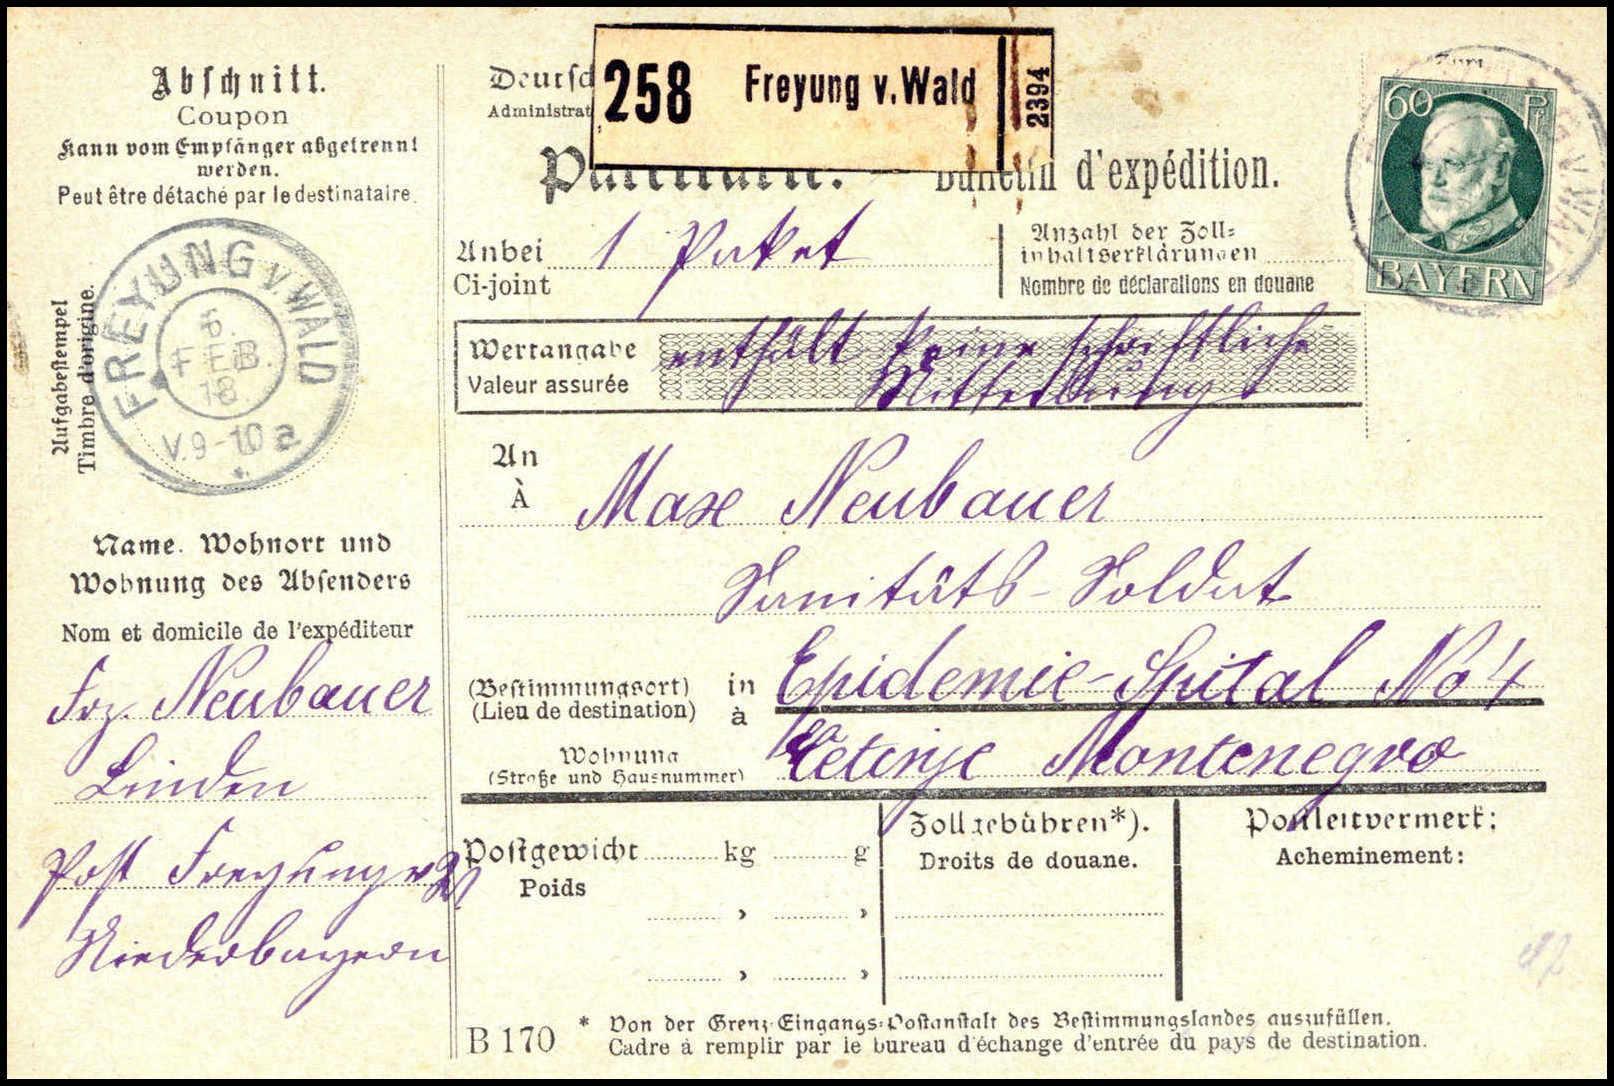 Abschnitt.
Coupon
Kann vom Empfänger abgetrennt
werden.
Peut être détaché par le destinataire.
Aufgabestempel
Timbre d'origine.
FREYUNG v. WALD
5.
FEB.
18
V. 9-10 a
Name. Wohnort und
Wohnung des Absenders
Nom et domicile de l'expéditeur
Frz. Neubauer
Linden
Post Freyung v W
Niederbayern
258 Freyung v. Wald 2394
Deutsc
Administrat
Bulletin d'expédition.
60 Pf
BAYERN
Anbei 1 Paket
Ci-joint
Anzahl der Zoll-
inhaltserklärungen
Nombre de déclarations en douane
Wertangabe
Valeur assurée
enthält keine schriftliche
Mitteilung
An
À
Max Neubauer
Sanitäts-Soldat
(Bestimmungsort) in
(Lieu de destination) à
Epidemie-Spital No 4
Wohnung
(Straße und Hausnummer)
Cetinje Montenegro
Postgewicht kg g
Poids
Zollgebühren*).
Droits de douane.
Postleitvermerk:
Acheminement:
B 170
* Von der Grenz-Eingangs-Postanstalt des Bestimmungslandes auszufüllen.
Cadre à remplir par le bureau d'échange d'entrée du pays de destination.